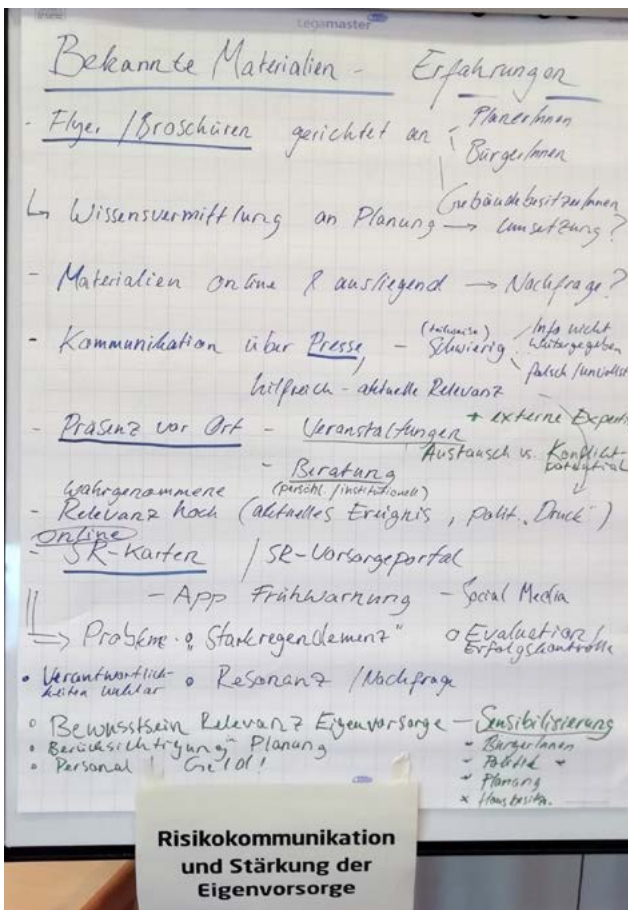 Legamaster
Bekannte Materialien - Erfahrungen
- Flyer / Broschüren gerichtet an - PlanerInnen
BürgerInnen
GebäudebesitzerInnen
↳ Wissensvermittlung an Planung → Umsetzung?
- Materialien online & ausliegend → Nachfrage?
- Kommunikation über Presse - (teilweise) Schwierig
Info nicht weitergegeben
falsch / unvollst
hilfreich - aktuelle Relevanz
+ externe Expert
- Präsenz vor Ort - Veranstaltungen
Austausch vs. Konfliktpotential
- Beratung
(persönl. / institutionell)
wahrgenommene
- Relevanz hoch (aktuelles Ereignis, polit. "Druck")
online
- SR-Karten / SR-Vorsorgeportal
- App Frühwarnung - Social Media
⇒ Probleme • "Starkregendemenz" o Evaluation /
Erfolgskontrolle
• Verantwortlich-
keiten unklar o Resonanz / Nachfrage
o Bewusstsein Relevanz Eigenvorsorge - Sensibilisierung
• Berücksichtigung Planung
• Personal! Geld!
- BürgerInnen
- Politik
- Planung
x Hausbesitz.
Risikokommunikation
und Stärkung der
Eigenvorsorge